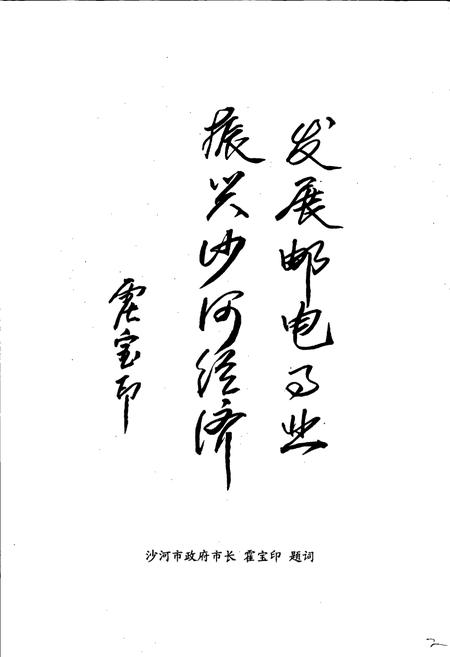 发展邮电事业
振兴沙河经济
霍宝印
沙河市政府市长 霍宝印 题词